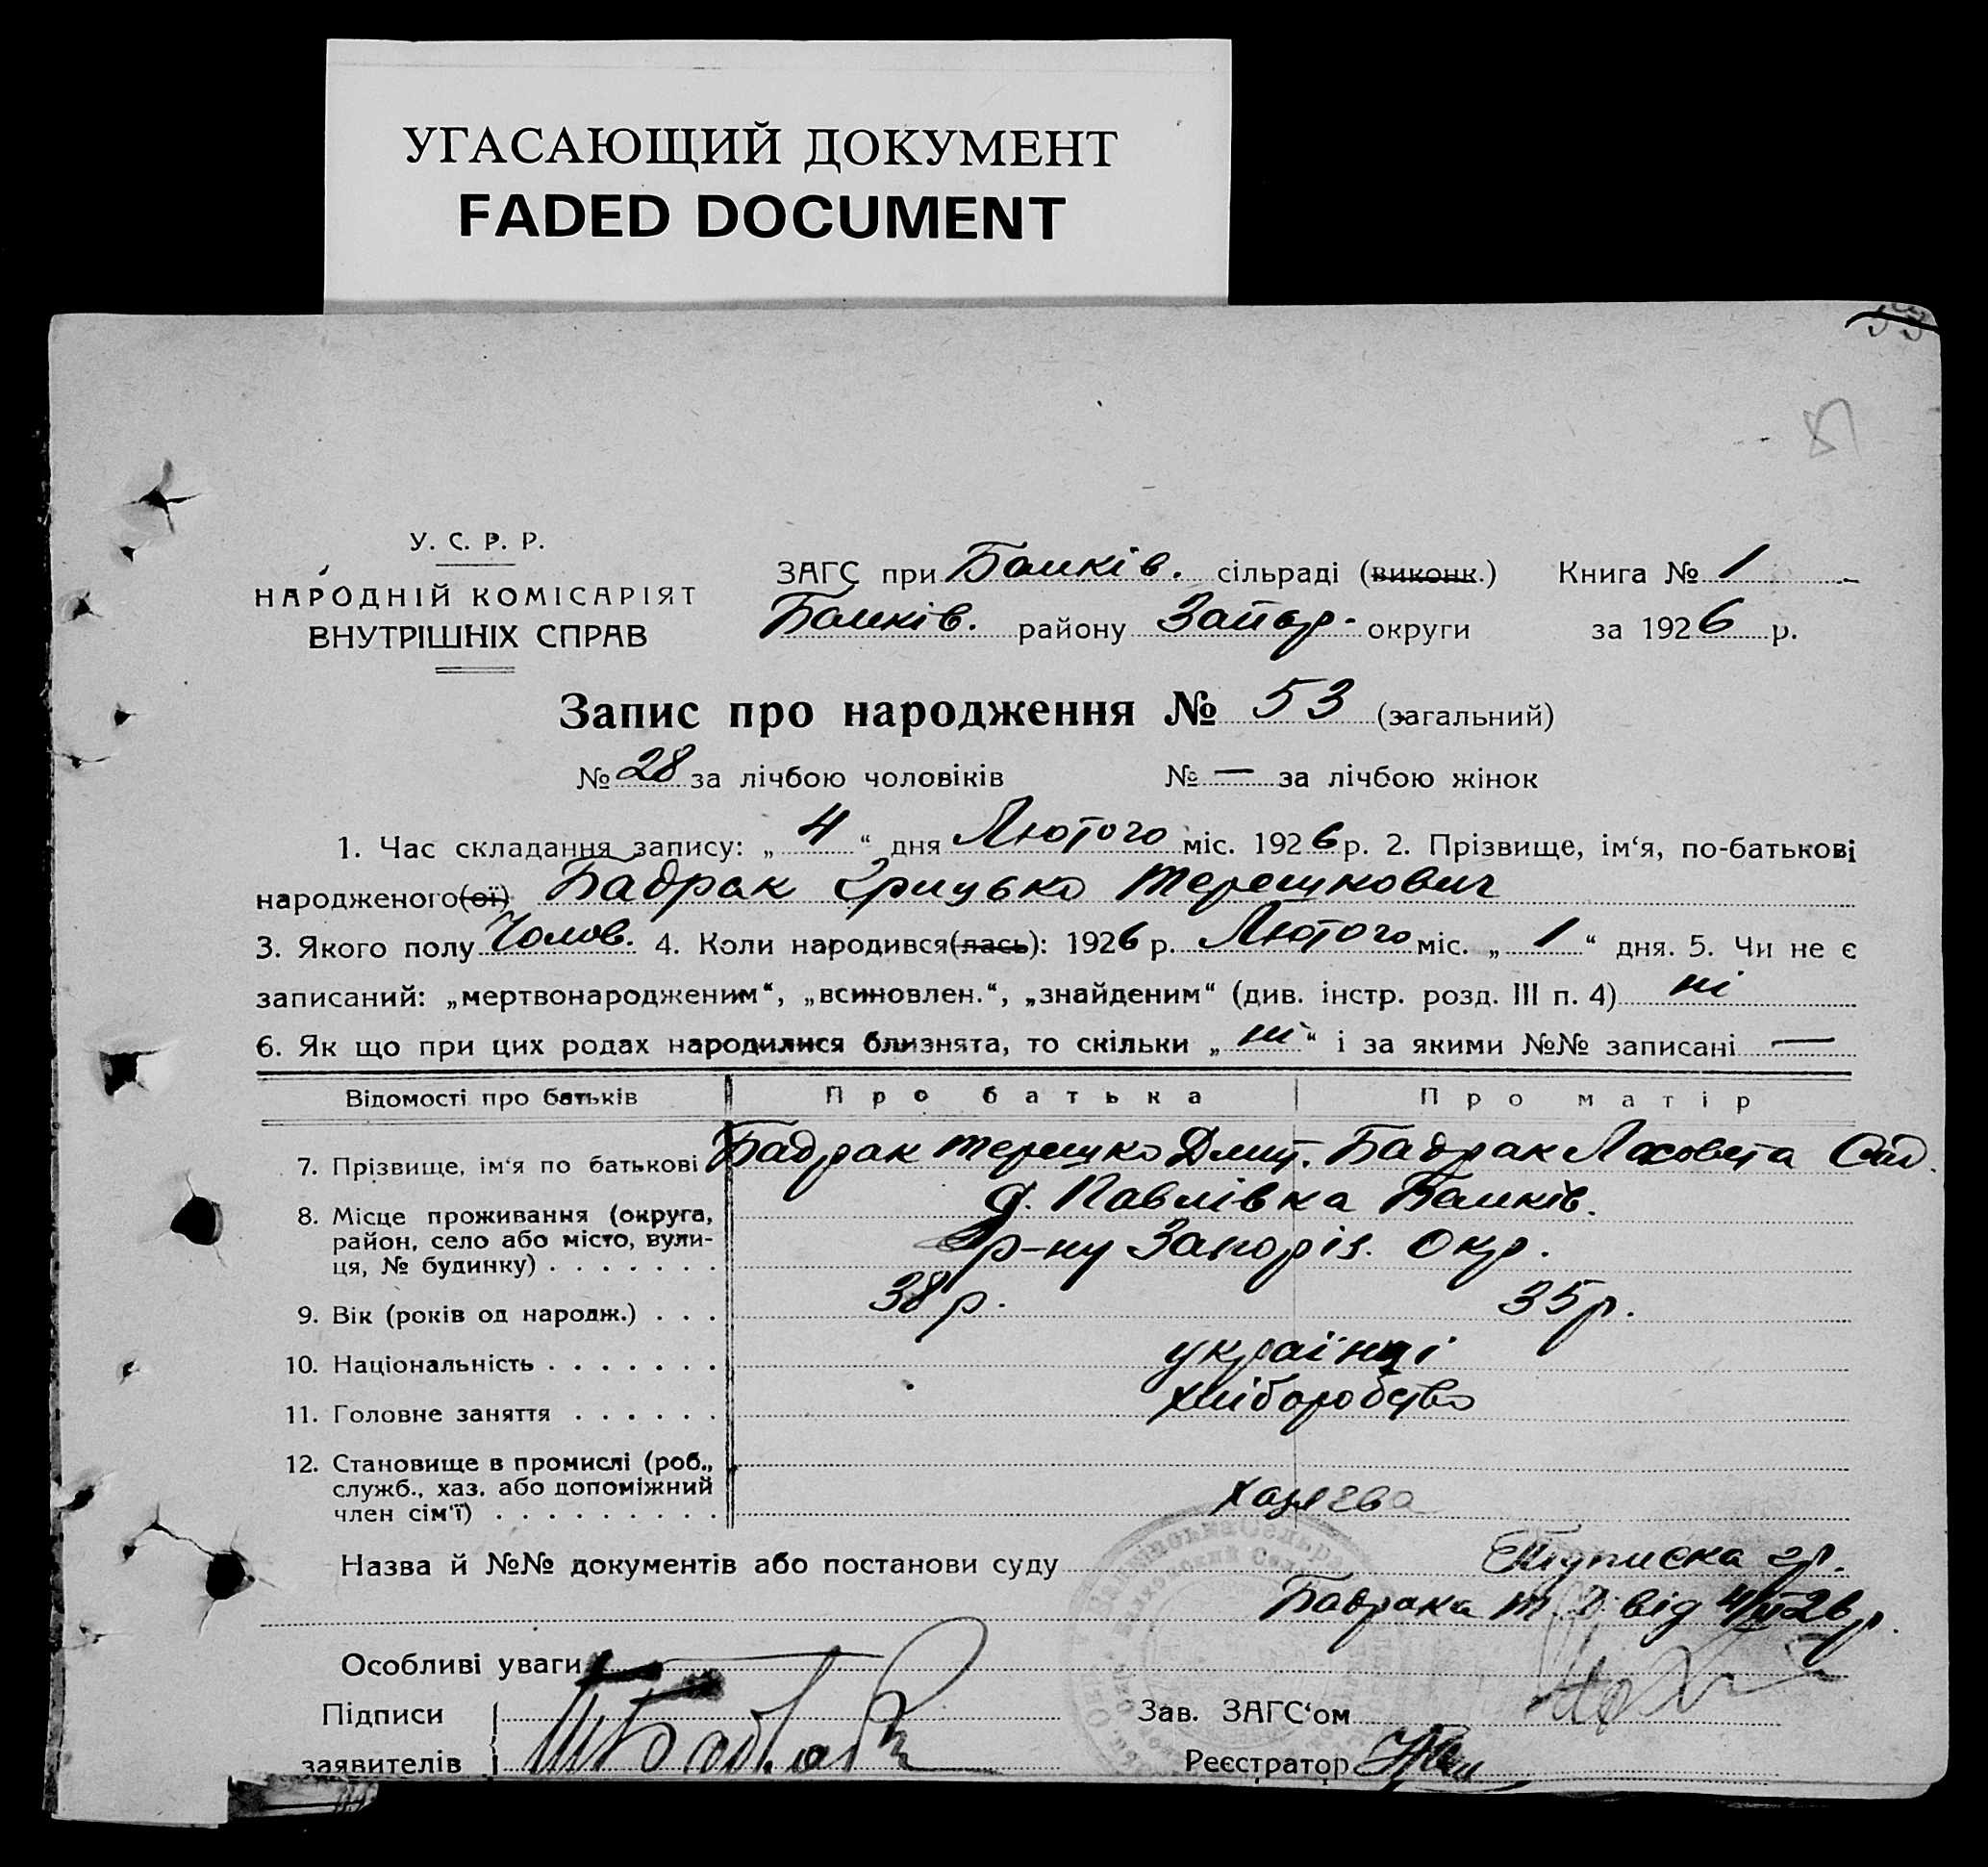 УГАСАЮЩИЙ ДОКУМЕНТ
FADED DOCUMENT
У. С. Р. Р.
НАРОДНІЙ КОМІСАРІЯТ
ВНУТРІШНІХ СПРАВ
ЗАГС при Балків. сільраді (виконк.) Книга № 1
Балків. району Запор. округи за 1926 р.
Запис про народження № 53 (загальний)
№ 28 за лічбою чоловіків № — за лічбою жінок
1. Час складання запису: „ 4 “ дня Лютого міс. 1926 р. 2. Прізвище, ім‘я, по-батькові
народженого(ої) Бадрак Грицько Терешкович
3. Якого полу Чолов. 4. Коли народився(лась): 1926 р. Лютого міс. „ 1 “ дня. 5. Чи не є
записаний: „мертвонародженим“, „всиновлен.“, „знайденим“ (див. інстр. розд. III п. 4) ні
6. Як що при цих родах народилися близнята, то скільки „ ні “ і за якими №№ записані —
Відомості про батьків Про батька Про матір
7. Прізвище, ім‘я по батькові Бадрак Терешко Дмит. Бадрак Лисовета
8. Місце проживання (округа, район, село або місто, вулиця, № будинку) . . . . . . . Павлівка Балків.
р-ну Запоріз. Окр.
9. Вік (років од народж.) . . . 38 р. 35 р.
10. Національність . . . . . . . українці
11. Головне заняття . . . . . . хліборобство
12. Становище в промислі (роб., служб., хаз. або допоміжний член сім‘ї) . . . . . . . . . хазяєва
Назва й №№ документів або постанови суду Підписка гр.
Бадрака Т. Д. від 4/II 26 р.
Особливі уваги
Підписи
заявителів Т Бадрак
Зав. ЗАГС‘ом
Реєстратор